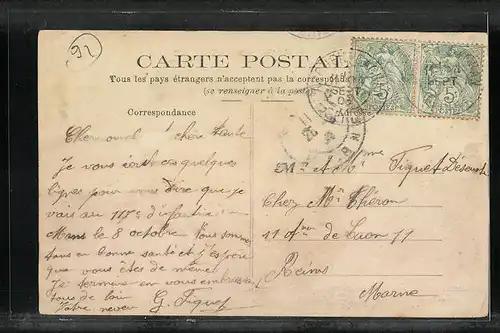 92
CARTE POSTALE
Tous les pays étrangers n'acceptent pas la correspondance
(se renseigner à la poste)
Correspondance
Adresse
chère tante
Je vous écris ces quelques
lignes pour vous dire que je
vais au 117e d'infanterie
Mans le 8 octobre. Nous sommes
tous en bonne santé et j'espère
que vous êtes de même
Je termine en vous embrassant
tous de loin
Votre neveu G. Fiquet
M. & Mme Fiquet
Chez Mr Théron
11 de Laon 77
Reims
Marne